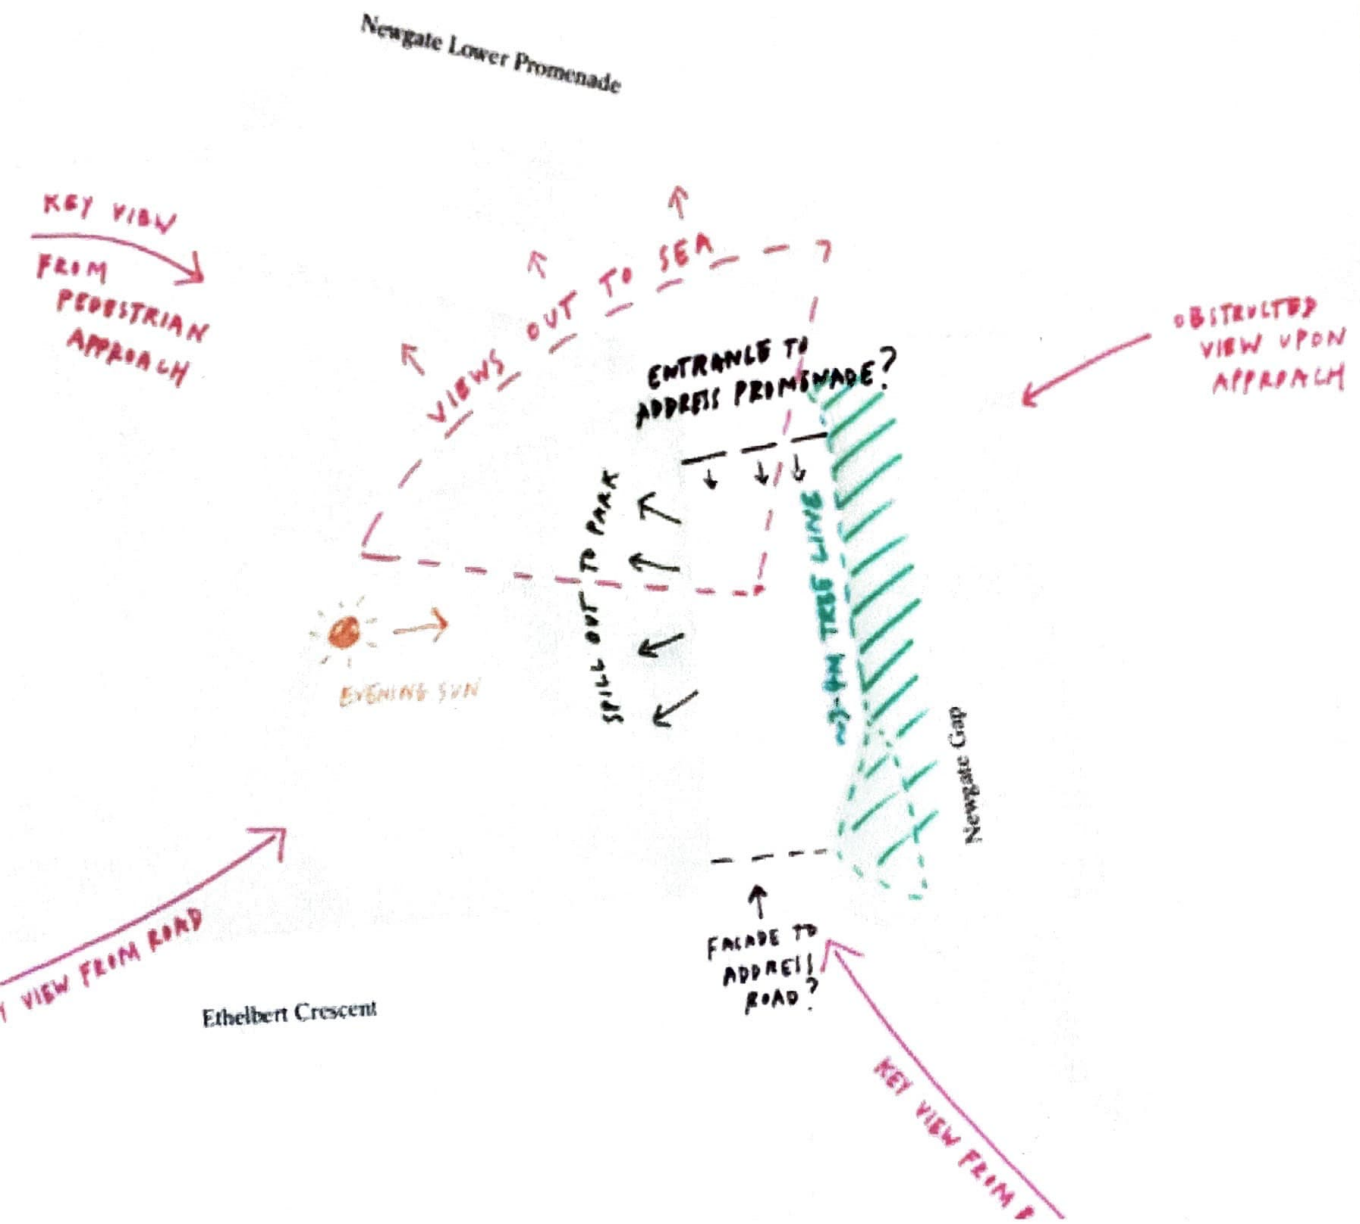 Newgate Lower Promenade
KEY VIEW
FROM
PEDESTRIAN
APPROACH
VIEWS OUT TO SEA
OBSTRUCTED
VIEW UPON
APPROACH
ENTRANCE TO
ADDRESS PROMENADE?
SPILL OUT TO PARK
TREE LINE
EVENING SUN
Newgate Gap
VIEW FROM ROAD
Ethelbert Crescent
FACADE TO
ADDRESS
ROAD?
KEY VIEW FROM